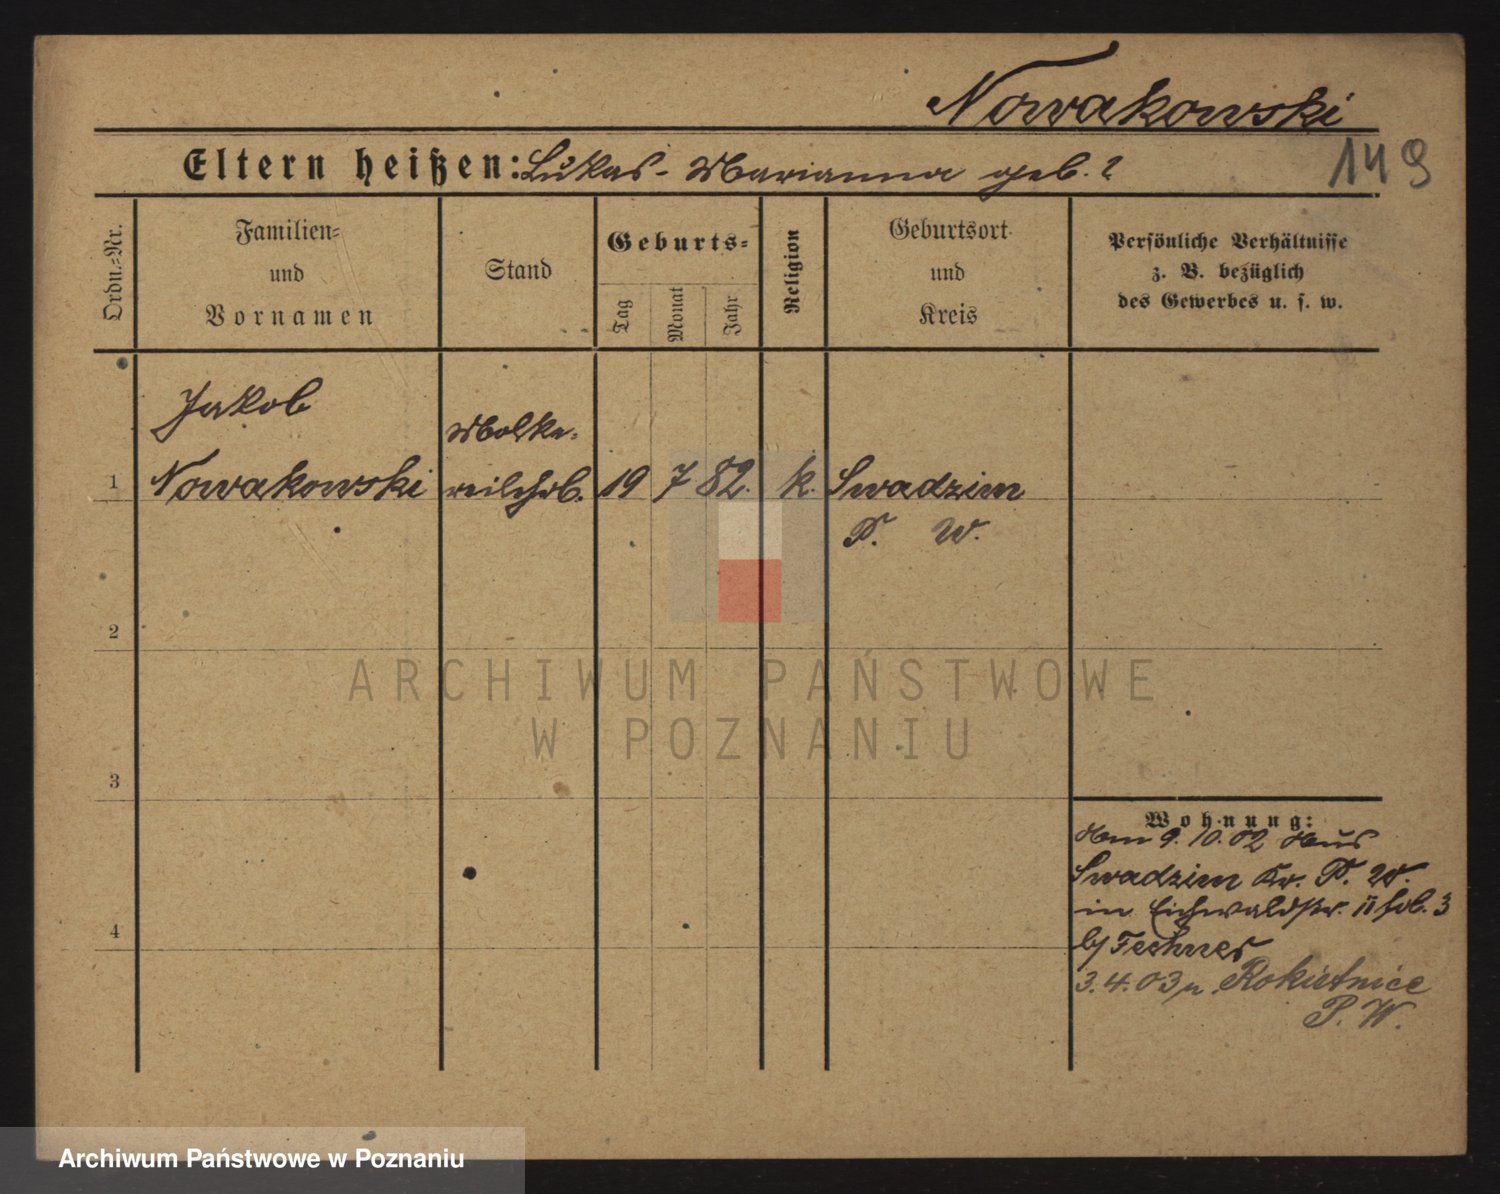 Nowakowski
149
Eltern heißen: Lukas - Marianna geb. ?
Ordn.-Nr.
Familien- und Vornamen
Stand
Geburts-
Tag
Monat
Jahr
Religion
Geburtsort und Kreis
Persönliche Verhältnisse
z. B. bezüglich
des Gewerbes u. s. w.
Jakob
Molke-
1 Nowakowski reilehrl. 19 7 82. k. Swadzim
P. W.
2
ARCHIWUM PAŃSTWOWE
W POZNANIU
3
Wohnung:
Am 9. 10. 02 aus
Swadzim Kr. P. W.
in Eichwaldstr. II 3
4
b/ Teschner
3. 4. 03 n. Rokietnice
P. W.
Archiwum Państwowe w Poznaniu